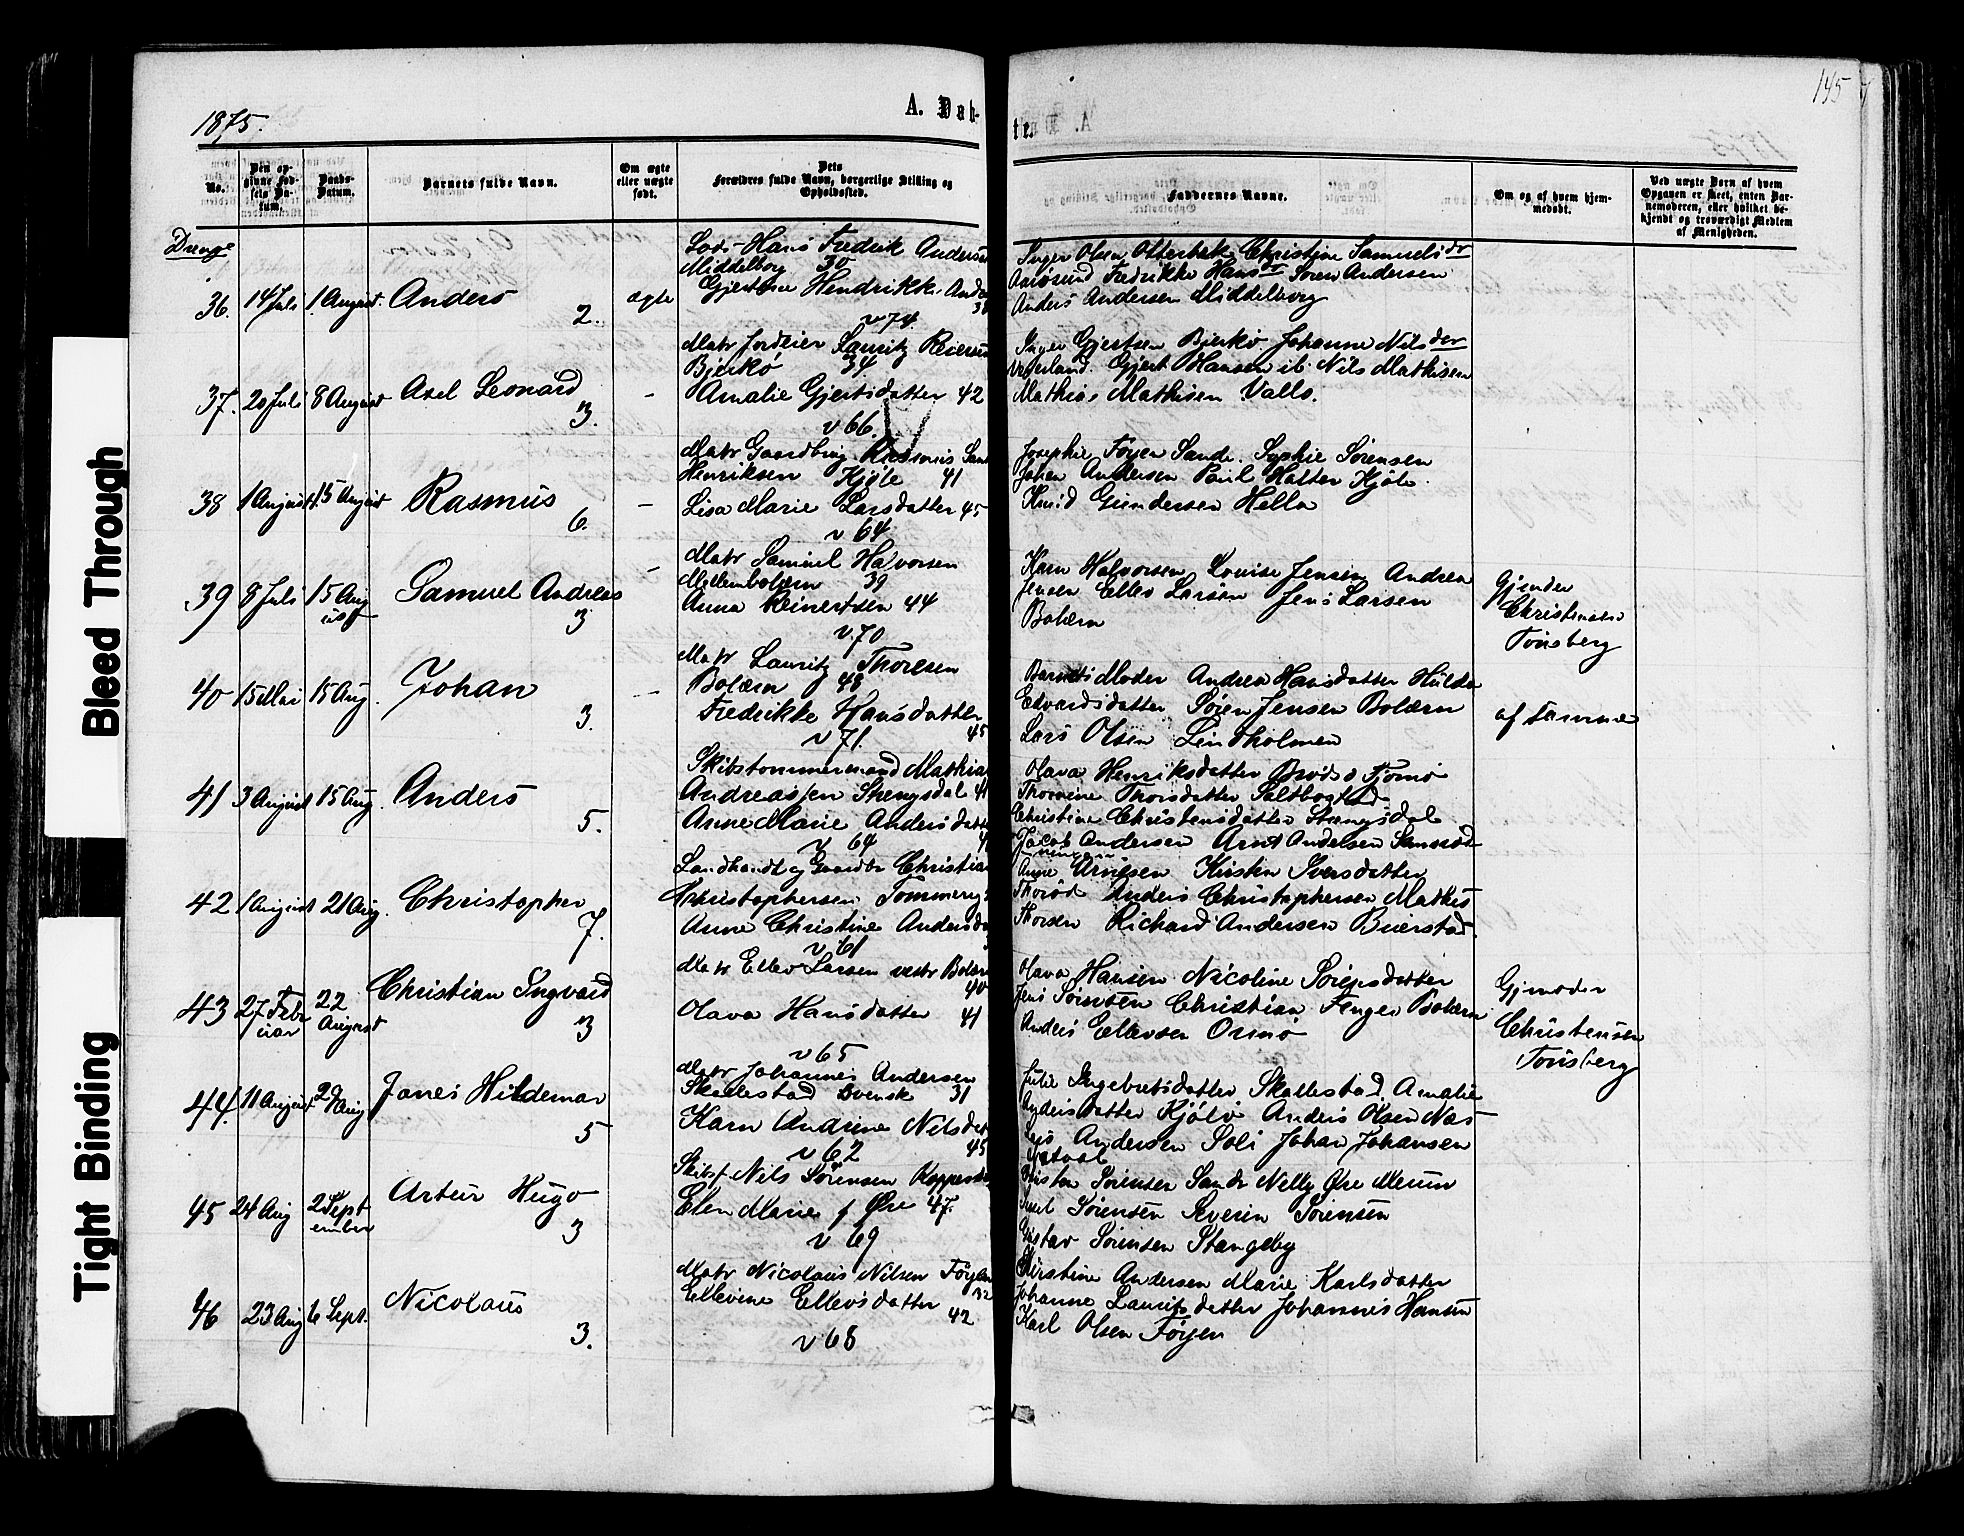 1875.
A. Døb-
te.
145
No.
Den opgivne Fødsels Datum.
Daabs-Datum.
Barnets fulde Navn.
Om ægte eller uægte født.
Dets Forældres fulde Navn, borgerlige Stilling og Opholdssted.
Faddernes Navne.
Om og af hvem hjemmedøbt.
Ved uægte Barn af hvem Opgaven er skeet, enten Barnemoderen, eller hvilket bekjendt og troværdigt Medlem af Menigheden.
Drenge
36. 14 Juli 1. August. Anders 2. ægte
Lods Hans Fredrik Andersen
Middelborg 30
Gjertine Hendrikke
v 74.
Inger Olsen Otterbek Christine Samuelsdr
Fredrikke Hansdr Søren Andersen
Anders Andersen Middelborg
37. 20 Juli 8 August Axel Leonard 3. -
Matr Jordeier Lauritz
Bjerkø 34
Amalie Gjertsdatter 42
v 66.
Inger Gjertsen Bjerkø Johanne Nilsdr
Gjert Hansen ib. Nils Mathisen
Mathias Mathisen Vallø.
38 1 August 15 August Rasmus 6. -
Matr Gaardbrug Rasmus
Henriksen Kjøle 41
Lisa Marie Larsdatter 45
v 64.
Josephie Føyen Sande. Sophie Sørensen
Johan Andersen Paul Hatten Kjøle.
Knud Gundersen Hella
39 8 Juli 15 August Samuel Andreas 3 -
Matr Samuel Halvorsen
Mellembolærn 39
Anna Reinertsen 44
v. 70
Karn Halvorsen Louise Jensen Andrea
Jensen Ellev Larsen Jens Larsen
Bolærn
Gjmoder
Christensen
Tønsberg
40 15 Mai 15 Aug. Johan 3. -
Matr Lauritz Thoresen
Bolærn 48
Fredrikke Hansdatter 45
v 71.
Barnets Moder Andrea Hansdatter Hulda
Edvardsdatter Søren Jensen Bolærn
Lars Olsen Lindholmen
af samme
41 3 August 15 Aug. Anders 5.
Skibstømmermand Mathias
Andreassen Stengsdal 41
Anne Marie Andersdatter
v 64
Olava Henriksdatter Brøds Tjømø
Thorine Thorsdatter
Christine Christensdatter Stængsdal
Jacob Andersen Arnt Andersen
42 1 August 21 Aug. Christopher 7.
Landhandl og Gaardbr Christian
Christophersen
Anne Christine Andersd
v 61
Anne Arnesen Kirsten Iversdatter
Thorød Anders Christophersen Mathis
Thorsen Richard Andersen Buerstad.
43 27 Februar 22 August Christian Ingvard 3
Matr Ellev Larsen vestr Bolærn
40
Olava Hansdatter 41
v 65
Olava Hansen Nicoline Sørensdatter
Jens Sørensen Christian Fenger Bolærn
Anders Ellevsen Ormø
Gjmoder
Christensen
Tønsberg
44. 11 August 29 Aug Janes Hildemar 5
Matr Johannes Andersen
Skallestad Svensk 31
Karn Andrine Nilsdr
45
v 62
Julie Ingebretsdatter Skallestad. Amalie
Andersdatter Kjøle Anders Olsen Næs
Andersen Soli Johan Johansen
45 24 Aug 2 September Artur Hugo 3
Skibsf. Nils Sørensen
Elen Marie f Øre 47.
v 69
Sørensen Sande Nelly Øre Meum
Sørensen Severin Sørensen
Gustav Sørensen Stangeby
46 23 Aug 6 Sept. Nicolaus 3.
Matr Nicolaus Nilsen Føyen
32
Ellevine Ellevsdatter
42
v 68
Kirstine Andersen Marie Karlsdatter
Johanne Lauritsdatter Johannes Hansen
Karl Olsen Føyen
Bleed Through
Tight Binding